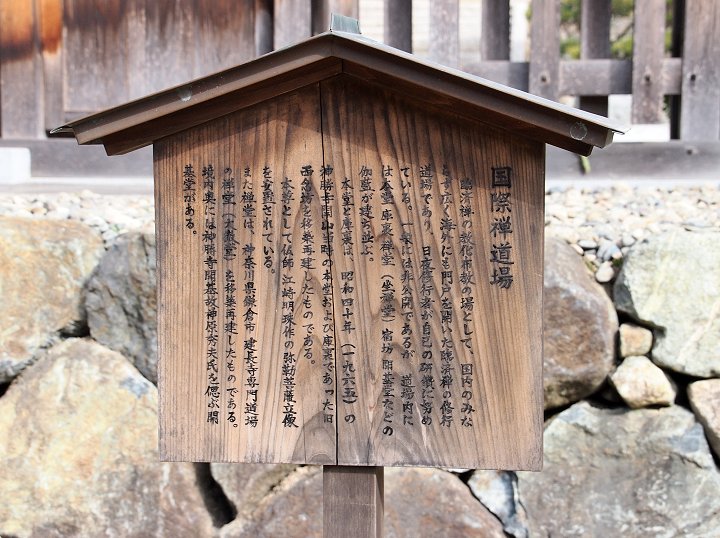 国際禅道場
臨済禅の教化布教の場として、国内のみな
らず広く海外にも門戸を開いた臨済禅の修行
道場であり、日夜修行者が自己の研鑽に努め
ている。一般には非公開であるが、道場内に
は本堂 庫裏 禅堂（坐禅堂）宿坊 開基堂などの
伽藍が建ち並ぶ。
本堂と庫裏は、昭和四十年（一九六五）の
神勝寺開山当時の本堂および庫裏であった旧
西名坊を移築再建したものである。
本尊として仏師 江崎明珠作の弥勒菩薩立像
を安置されている。
また禅堂は、神奈川県鎌倉市 建長寺専門道場
の禅堂（大徹堂）を移築再建したものである。
境内奥には神勝寺開基故神原秀夫氏を偲ぶ開
基堂がある。